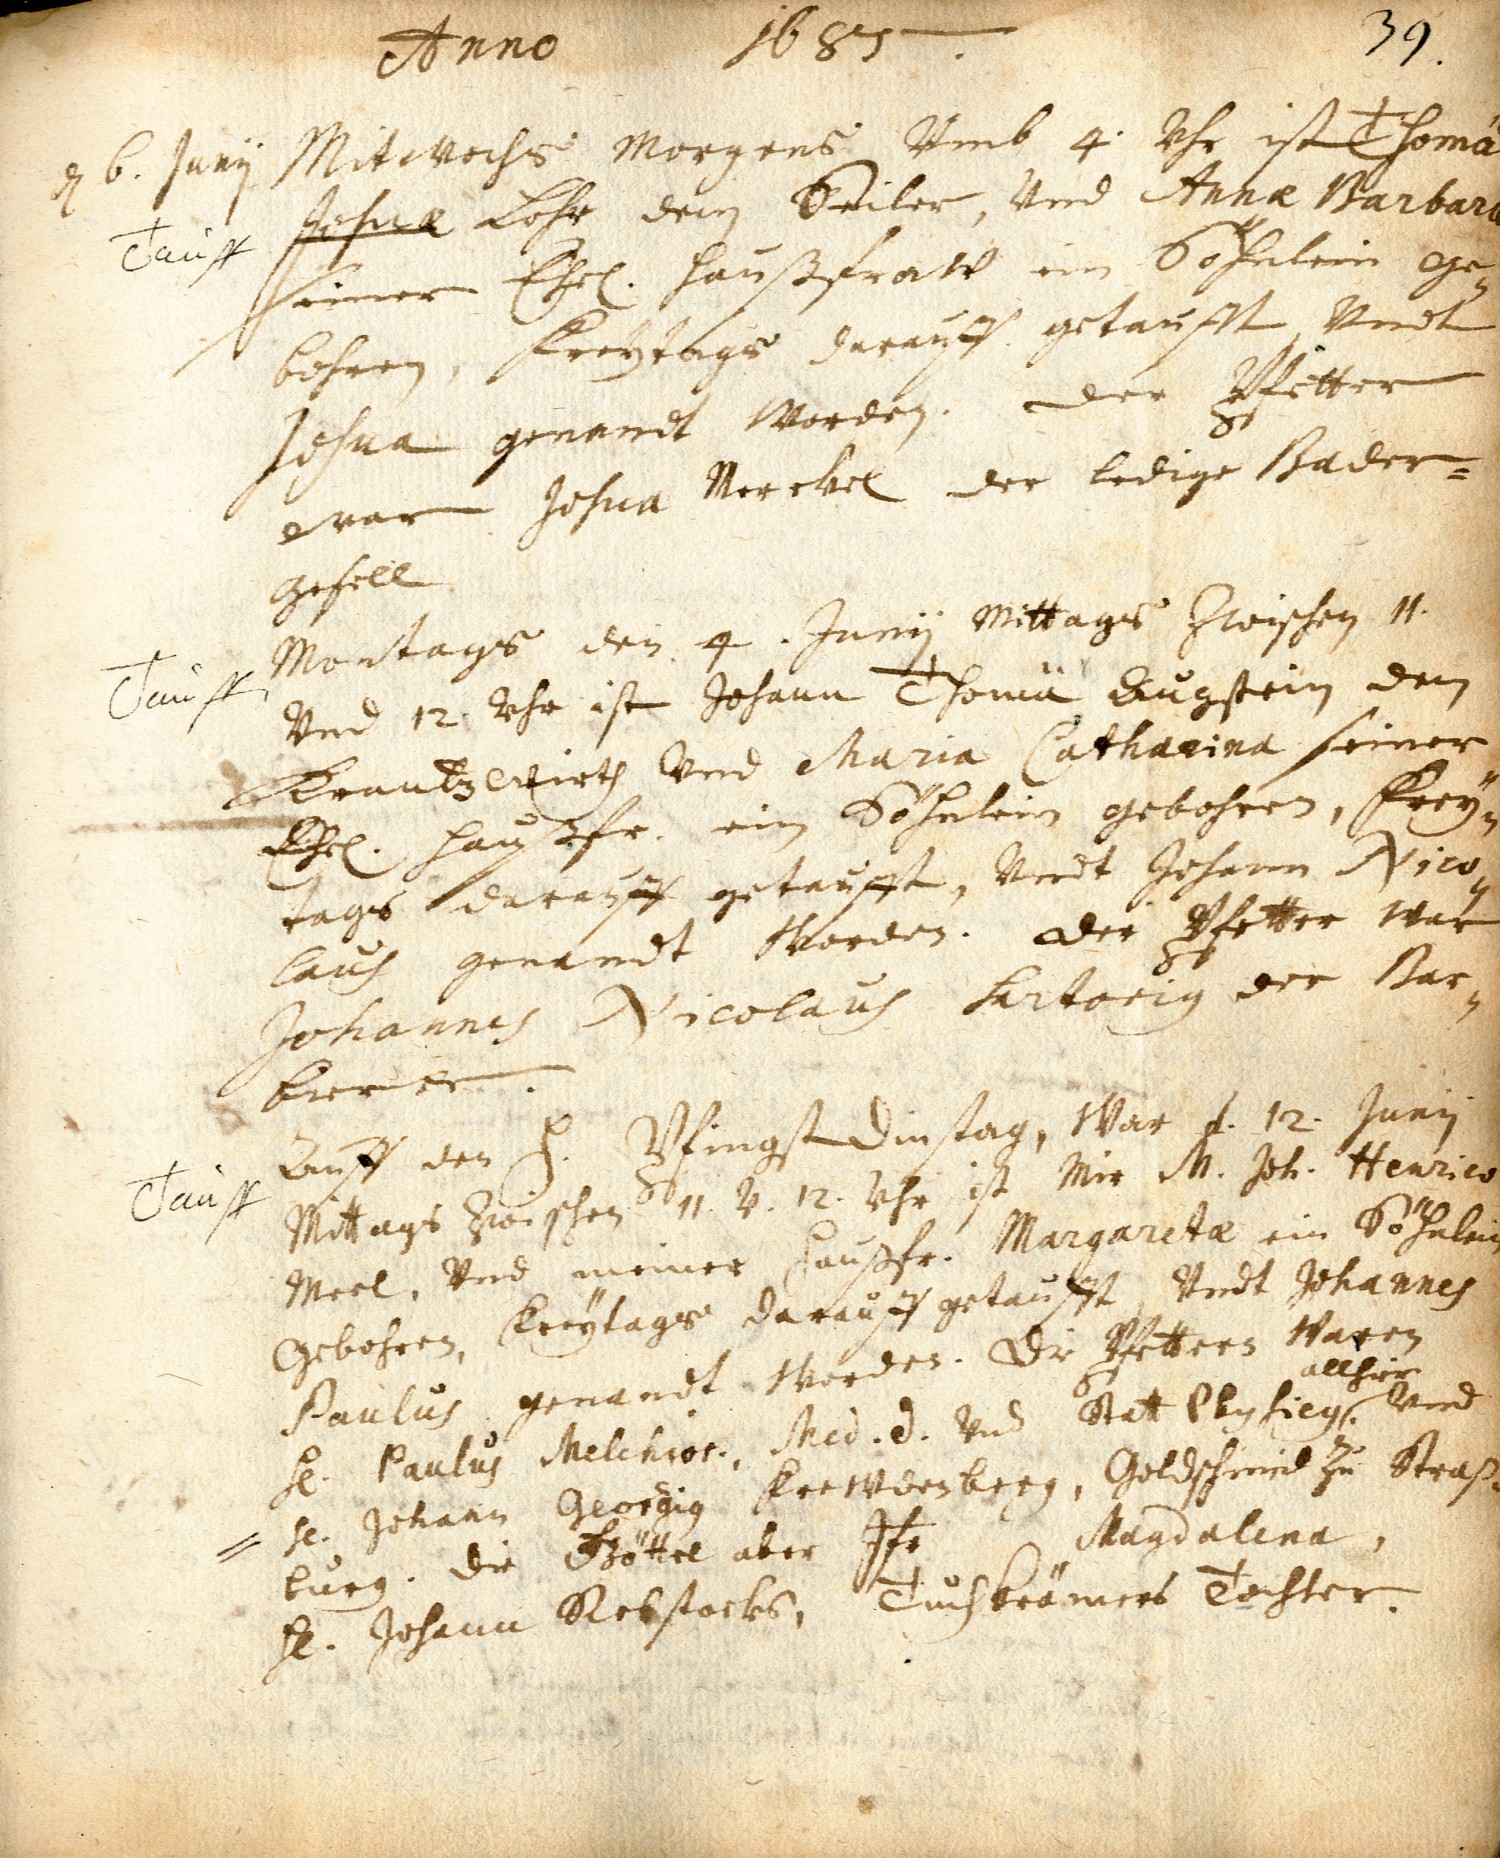 Anno 1683.
39.
d 6. Junij Mitwochs Morgens Vmb 4. Vhr ist Thomä
Tauff
Josuæ Lohr dem Seiler, Vnd Annæ Barbaræ
seiner Ehel. Haußfraw ein Söhnlein ge-
bohren, Freytags darauff getaufft Vndt
Josua genandt Worden. Der Pfetter
war Josua Merckel der ledige Bader-
gesell
Montags den 4. Junij Mittags Zwischen 11.
Tauff
Vnd 12. Vhr ist Johann Thomä Augstein dem
Wirth Vnd Maria Catharina seiner
Ehel. Haußfr. ein Söhnlein gebohren, Frey-
tags darauff getaufft, Vndt Johann Nico-
laus genandt Worden. Der Pfetter War
Johannes Nicolaus Sartorig der Bar-
bierer.
Auff den H. Pfingst Dinstag, War d. 12. Junij
Tauff
Mittags Zwischen 11. V. 12. Vhr ist Mir M. Joh. Henrico
Meel, Vnd meiner Haußfr. Margaretæ ein Söhnlein
Gebohren, Freytags darauff getaufft Vndt Johannes
Paulus genandt Worden. Die Pfettern Waren
H. Paulus Melchior, Med. D. Vnd Statt Physicg. allhier Vnd
H. Johann Georgig Frewdenberg, Goldschmid Zu Straß-
burg. Die Göttel aber Jfr Magdalena,
H. Johann Rebstocks, Tuchkrämers Tochter.